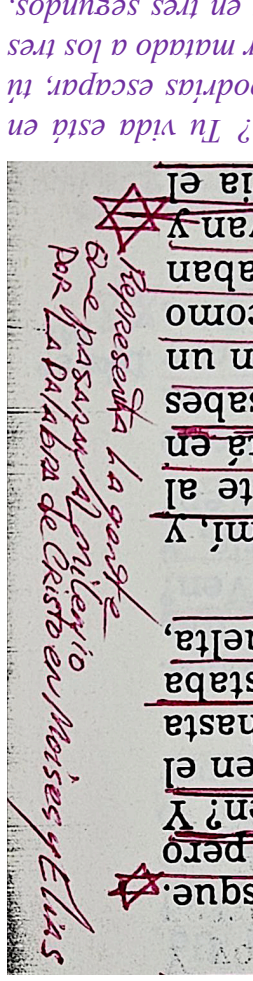 sque.
pero
en? Y
en el
hasta
staba
uelta,
mí, y
te al
tá en
sabes
n un
como
aban
van y
ía el
Representa La gente
Que pasara Al milenio
Por La Palabra de Cristo en Moises y Elias
? Tu vida está en
podrías escapar, tú
r matado a los tres
en tres segundos.